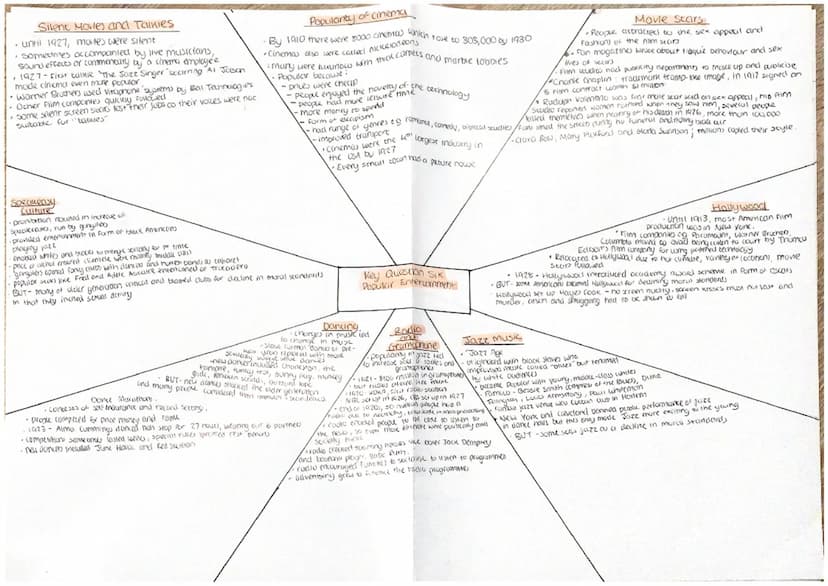 Silent Movies and Talkies
• Until 1927, movies were silent
• Sometimes accompanied by live musicians,
sound effects or commentary by a cinema employee
• 1927 - First talkie "The Jazz Singer" starring Al Jolson
made cinema even more popular
• Warner Brothers used Vitaphone systems by Bell
• Other film companies quickly followed
• Some silent screen stars lost their jobs as their voices were not
suitable for "talkies"
Popularity of Cinema
• By 1910 there were 8000 cinemas which rose to 303,000 by 1930
• Cinemas also were called nickelodeons
• Many were luxurious with thick carpets and marble lobbies
• Popular because:
- prices were cheap
- people enjoyed the novelty of the technology
- people had more leisure time
- more money to spend
- form of escapism
- had range of genres e.g romance, comedy,
- improved transport
• Cinemas were the 4th largest industry in
the USA by 1927
• Every small town had a picture house
Movie Stars
• People attracted to the sex appeal and
fashion of the film stars
• Fan magazines wrote about risqué behaviour and sex
lives of stars
• Film studios had publicity departments to make up and publicise
• Charlie Chaplin - trademark tramp-like image, in 1917 signed an
film contract worth $1 million
• Rudolph Valentino was first male star sold on sex appeal, his film
studio reported women fainted when they saw him, several people
killed themselves when hearing of his death in 1926, more than 100,000
fans lined the streets during his funeral and rioting broke out
• Clara Bow, Mary Pickford and Gloria Swanson; millions copied their style
Speakeasy
Culture
• prohibition resulted in increase of
speakeasies, run by gangsters
• provided entertainment in form of black Americans
playing jazz
• enabled whites and blacks to mingle socially for 1st time
BUT - many of older generation critical and blamed clubs for decline in moral standards
in that they invited sexual
Hollywood
• Until 1913, most American film
production was in New York.
• Film companies e.g. Paramount, Warner Brothers,
Columbia moved to avoid being taken to court by Thomas
Edison's film company for using patented technology
• Relocated to Hollywood due to hot climate, variety of locations, movie
stars followed
• 1928 - Hollywood introduced academy award scheme in form of Oscars
BUT - some Americans blamed Hollywood for declining moral standards
Hollywood set up Hayes Code - no screen nudity, screen kisses must not last and
murder, crime and smuggling had to be shown as evil
Key Question Six
Popular Entertainment
Dancing
• Changes in music led
to change in music
• Slow formal dances of pre-
war given
• new dances included Charleston, the
BUT - new dances shocked the older generation
and many people considered them immoral
Dance Marathons:
- Contests of self endurance and record setting
• People competed for prize money and fame
• 1923 - Alma Cummings danced non stop for 27 hours, wearing out 6 partners
• Competitions sometimes lasted weeks, special rules
• New dances included June Havoc and Red Skelton
Radio
and
Gramophone
• popularity of jazz led
to increase sale of radios and
gramophones
• radio enabled people to be able to listen to
• radio created sporting heroes like boxer Jack Dempsey
and baseball player, Babe Ruth
• radio encouraged families to socialise to listen to programmes
• advertising grew to finance the radio programmes
Jazz Music
• 'Jazz Age'
• originated with black slaves who
improvised music called "blues" but renamed
by white audiences
• became popular with young, middle-class whites
• famous - Bessie Smith (empress of the blues), Duke
Ellington, Louis Armstrong, Paul Whiteman
• famous jazz venue was Cotton Club in Harlem
• New York and Cleveland banned public performance of jazz
in dance halls but this only made Jazz more exciting to the young
BUT - some saw jazz as a decline in moral standards